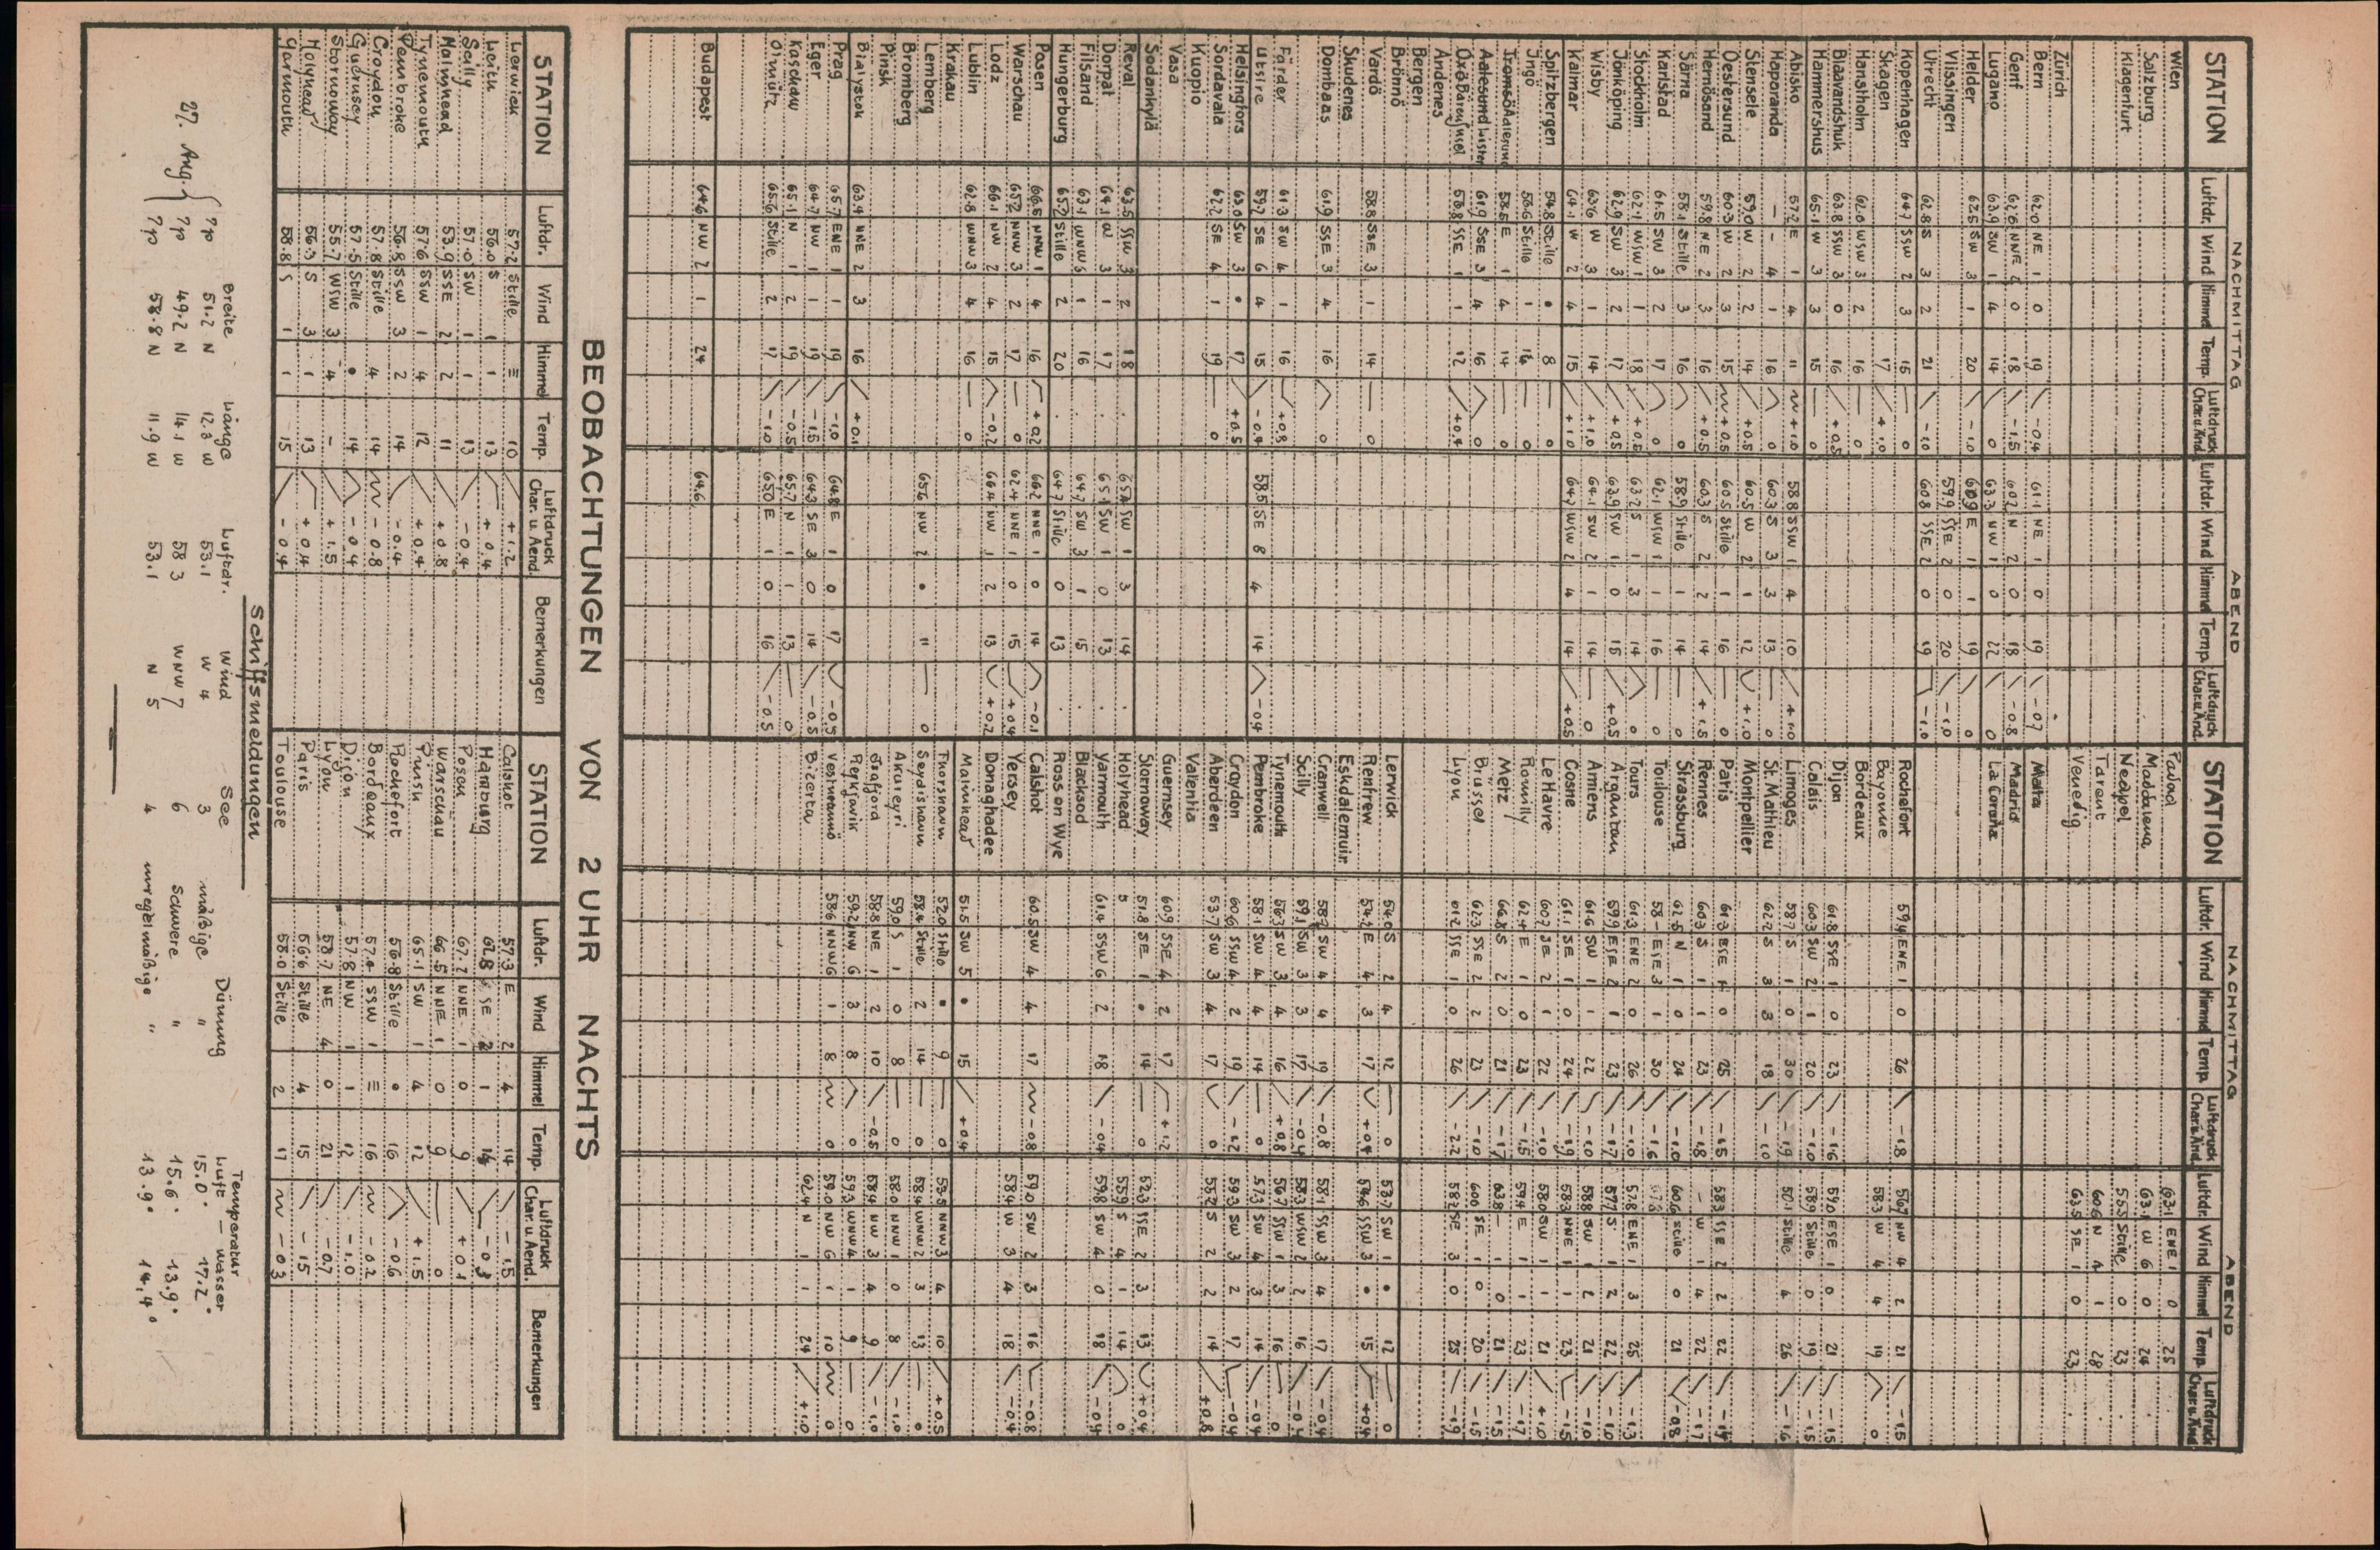 STATION NACHMITTAG ABEND STATION NACHMITTAG ABEND
Luftdr. Wind Himmel Temp. Luftdruck Char. u. Änd. Luftdr. Wind Himmel Temp. Luftdruck Char. u. Änd. Luftdr. Wind Himmel Temp. Luftdruck Char. u. Änd. Luftdr. Wind Himmel Temp. Luftdruck Char. u. Änd.
Wien Padua 63.1 ENE 1 0 25
Salzburg Maddalena 63.1 W 6 0 24
Klagenfurt Neapel 55.5 Stille 0 23
Tarent 60.6 N 4 1 28
Venedig 63.5 SE 1 0 23
Zürich
Bern 62.0 NE 1 0 19 -0.4 61.1 NE 1 0 19 -0.7 Malta
Genf 61.6 NNE 2 0 18 -1.5 60.2 N 2 0 18 -0.8 Madrid
Lugano 63.9 SW 1 4 14 0 63.3 NW 1 0 22 0 La Coruña
Helder 62.5 SW 3 1 20 -1.0 60.9 E 1 1 19 0
Vlissingen 59.9 SSE 2 0 20 -1.0
Utrecht 62.8 S 3 2 21 -1.0 60.8 SSE 2 0 19 -1.0
Kopenhagen 64.7 SSW 2 3 15 0 Rochefort 59.4 ENE 1 0 26 -1.8 56.7 NW 4 2 21 -1.5
Skagen 17 +1.0 Bayonne 58.3 W 4 4 19 0
Hanstholm 62.0 WSW 3 2 16 0 Bordeaux
Blaavandshuk 63.8 SSW 3 0 16 +0.5 Dijon 61.8 SSE 1 0 23 -1.6 59.0 ESE 1 0 21 -1.5
Hammershus 65.1 W 3 3 15 0 Calais 60.3 SW 2 1 20 -1.0 58.9 Stille 0 19 -1.5
Abisko 57.2 E 1 4 11 +1.0 58.8 SSW 1 4 10 +1.0 Limoges 58.7 S 1 0 30 -1.9 50.1 Stille 4 26 -1.6
Haparanda - - 4 1 16 0 60.3 S 3 3 13 0 St. Mathieu 62.2 S 3 3 18 -1.0
Stensele 59.0 W 2 2 14 +0.5 60.5 W 2 1 12 +1.0 Montpellier
Oestersund 60.3 W 2 3 15 +0.5 60.5 Stille 1 16 0 Paris 61.3 ESE 1 0 25 -1.5 58.3 SSE 2 2 22 -1.4
Hernösand 59.8 NE 2 3 16 +0.5 60.3 S 2 2 14 +1.5 Rennes 60.3 S 1 1 23 -1.8 - W 1 4 22 -1.7
Särna 58.1 Stille 3 16 0 58.9 Stille 1 14 0 Strassburg 62.5 N 1 0 24 -1.0 60.6 Stille 0 21 -0.8
Karlstad 61.5 SW 3 2 17 0 62.1 WSW 1 1 16 0 Toulouse 58 - ESE 3 1 30 -1.6
Stockholm 62.1 WSW 1 1 18 +0.5 63.2 S 1 3 14 0 Tours 61.3 ENE 2 0 26 -1.0 57.8 ENE 1 3 25 -1.3
Jönköping 62.9 SW 3 2 17 +0.5 63.9 SW 1 0 15 +0.5 Argentan 59.9 ESE 2 1 23 -1.7 57.7 S 1 2 22 -1.0
Wisby 63.6 W 3 1 14 +1.0 64.1 SW 2 1 14 0 Amiens 61.6 SW 1 1 22 -1.0 58.8 SW 1 2 21 -1.0
Kalmar 64.1 W 2 4 15 +1.0 64.7 WSW 2 4 14 +0.5 Cosne 61.1 SE 1 0 24 -1.9 58.3 NNE 1 1 23 -1.5
Spitzbergen 54.8 Stille • 8 0 Le Havre 60.7 SE 2 1 22 -1.0 58.0 SW 1 1 21 +1.0
Ingö 56.6 Stille 1 16 0 Romilly 62.4 E 1 0 23 -1.5 59.4 E 1 1 23 -1.7
Tromsö 58.5 E 1 4 14 0 Metz 66.8 S 2 0 21 -1.7 63.8 - 0 21 -1.5
Aalesund 61.9 SSE 3 4 16 0 Brüssel 62.3 SSE 2 2 23 -1.0 60.0 SE 1 0 20 -1.5
Oxö Bäreninsel 56.8 SSE 1 1 12 +0.4 Lyon 61.2 SSE 1 0 26 -2.2 58.2 SE 3 0 25 -1.9
Andenes
Bergen
Brönnö Lerwick 54.0 S 2 4 12 0 53.7 SW 1 • 12 0
Vardö 58.8 SSE 3 1 14 0 Renfrew 54.2 E 4 3 17 +0.4 54.6 SSW 3 • 15 +0.4
Skudenes Eskdalemuir
Dombaas 61.9 SSE 3 4 16 0 Cranwell 58.7 SW 4 4 19 -0.8 58.1 SSW 3 4 17 -0.4
Scilly 59.1 SW 3 3 17 -0.4 58.3 WSW 2 2 16 -0.4
Färder 61.3 SW 4 1 16 +0.8 Tynemouth 56.3 SW 3 4 16 +0.8 56.7 SSW 1 3 16 0
Utsire 59.7 SE 6 4 15 -0.4 58.5 SE 8 4 14 -0.4 Pembroke 58.1 SW 4 4 14 0 57.3 SW 4 3 14 -0.4
Helsingfors 63.0 SW 3 • 17 +0.5 Croydon 60.6 SSW 4 2 19 -1.2 59.3 SW 3 2 17 -0.4
Sordavala 62.2 SE 4 1 19 0 Aberdeen 53.7 SW 3 4 17 0 55.2 S 2 2 14 +0.8
Kuopio Valentia
Vasa Guernsey 60.9 SSE 4 2 17 +1.2
Sodankylä Stornoway 51.8 SE 1 • 14 0 52.3 SSE 2 3 13 +0.4
Reval 63.5 SSW 3 2 18 65.4 SW 1 3 14 Holyhead 55.9 S 4 1 14 0
Dorpat 64.1 W 3 1 17 65.1 SW 1 0 13 Yarmouth 61.4 SSW 6 2 18 -0.4 59.8 SW 4 0 18 -0.4
Filsand 63.1 WNW 5 1 16 64.7 SW 3 1 15 Blacksod
Hungerburg 65.2 Stille 2 20 64.7 Stille 0 13 Ross on Wye
Posen 66.5 NNW 1 4 16 +0.2 66.2 NNE 1 0 14 -0.1 Calshot 60.5 SW 4 4 17 -0.8 59.0 SW 2 3 16 -0.8
Warschau 65.2 NNW 3 2 17 0 62.4 NNE 1 0 15 +0.4 Yersey 58.4 W 3 4 18 -0.4
Lodz 66.1 NW 2 4 15 -0.2 66.4 NW 1 2 13 +0.2 Donaghadee
Lublin 62.8 WNW 3 4 16 0 Malinhead 51.5 SW 5 • 15 +0.4
Krakau Thorshavn 52.0 Stille • 9 0 53.5 NNW 3 4 10 +0.5
Lemberg 65.6 NW 2 • 11 0 Seydisharn 58.4 Stille 2 14 0 58.4 WNW 2 3 13 0
Bromberg Akureyri 59.0 S 1 0 8 0 58.0 NNW 1 0 8 -1.0
Pinsk Isafjord 58.8 NE 1 2 10 -0.5 58.4 NW 3 4 9 -1.0
Bialystok 63.4 NNE 2 3 16 +0.1 Reykjavik 59.2 NW 6 3 8 0 59.3 WNW 4 1 9 0
Prag 65.7 ENE 1 1 19 -1.0 64.8 E 1 0 17 -0.5 Vestmannö 58.6 NNW 6 1 8 0 58.0 NW 6 1 10 0
Eger 64.7 NW 1 1 19 -1.5 64.3 SE 3 0 14 -0.5 Bizerta 62.4 N 1 1 24 +1.0
Kaschau 65.1 N 1 2 19 -0.5 65.7 N 1 1 13 0
Olmütz 65.6 Stille 2 17 -1.0 65.0 E 1 0 16 -0.5
Budapest 64.6 NW 2 1 24 64.6
BEOBACHTUNGEN VON 2 UHR NACHTS
STATION Luftdr. Wind Himmel Temp. Luftdruck Char. u. Aend. Bemerkungen STATION Luftdr. Wind Himmel Temp. Luftdruck Char. u. Aend. Bemerkungen
Lerwick 57.2 Stille ≡ 10 +1.2 Calshot 57.3 E 2 4 14 -1.5
Leith 56.0 S 1 1 13 +0.4 Hamburg 62.8 SSE 2 1 14 -0.3
Scilly 57.0 SW 1 1 13 -0.4 Posen 67.2 NNE 1 0 9 +0.1
Malinhead 53.9 SSE 2 2 11 +0.8 Warschau 66.5 NNE 1 0 9 0
Tynemouth 57.6 SSW 1 4 12 +0.4 65.1 SW 1 4 12 +1.5
Pembroke 56.8 SSW 3 2 14 -0.4 Rochefort 56.8 Stille • 16 -0.6
Croydon 57.8 Stille 4 14 -0.8 Bordeaux 57.4 SSW 1 ≡ 16 -0.2
Guernsey 57.5 Stille • 14 -0.4 Dijon 57.8 NW 1 1 12 -1.0
Stornoway 55.7 WSW 3 4 - +1.5 Lyon 58.7 NE 4 0 21 -0.7
Holyhead 56.3 S 3 1 13 +0.4 Paris 56.6 Stille 4 15 -1.5
Yarmouth 58.8 S 1 1 15 -0.4 Toulouse 58.0 Stille 2 17 -0.3
Schiffsmeldungen
Breite Länge Luftdr. Wind See Dünung Temperatur Luft - Wasser
27. Aug. { 7p 51.2 N 12.3 W 53.1 W 4 3 mäßige " 15.0° 17.2°
7p 49.2 N 14.1 W 58.3 WNW 7 6 schwere " 15.6° 13.9°
7p 58.8 N 11.9 W 53.1 N 5 4 unregelmäßige " 13.9° 14.4°